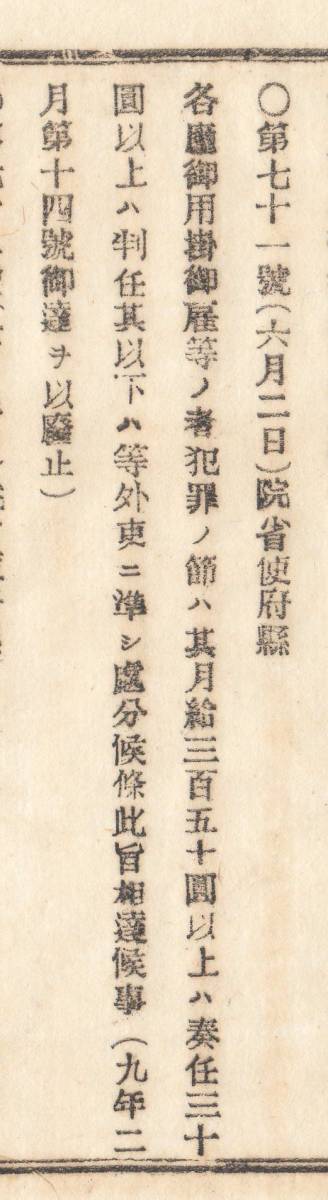 〇第七十一號(六月二日)院省使府縣
各廳御用掛御雇等ノ者犯罪ノ節ハ其月給三百五十圓以上ハ奏任三十
圓以上ハ判任其以下ハ等外吏ニ準シ處分候條此旨相達候事 (九年二
月第十四號御達ヲ以廢止)